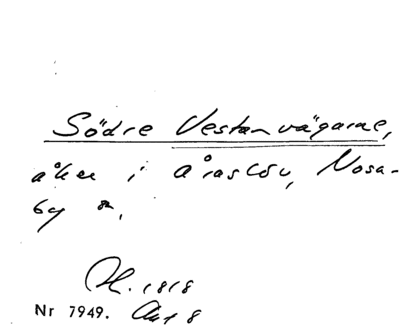 Södre Vestanvägarne,
åker i Åraslöv, Nosa-
by sn.
H. 1818
Nr 7949. Akt 8